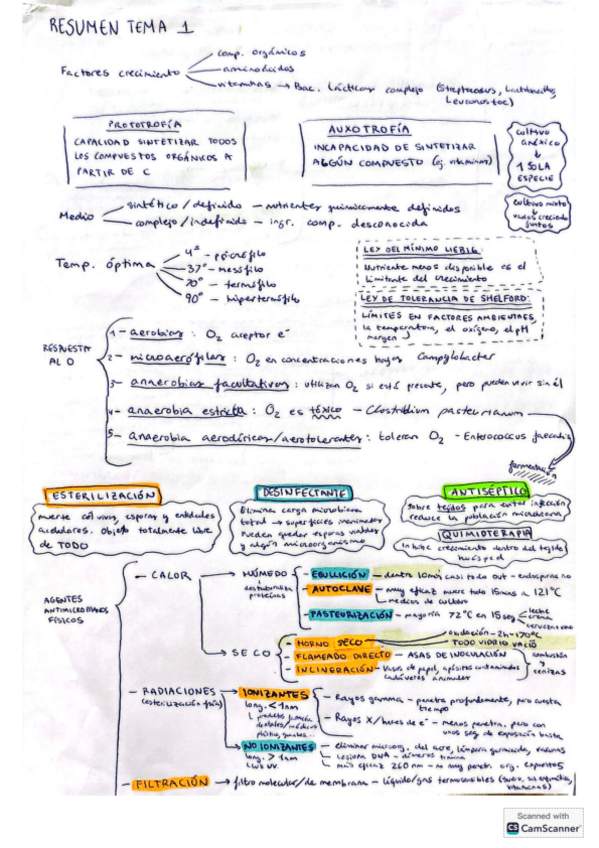 RESUMEN TEMA 1
Factores crecimiento
comp. orgánicos
aminoácidos
vitaminas → Bac. lácticas complejo (Streptococcus, Lactobacillus, Leuconostoc)
PROTOTROFÍA
CAPACIDAD SINTETIZAR TODOS
LOS COMPUESTOS ORGÁNICOS A
PARTIR DE C
AUXOTROFÍA
INCAPACIDAD DE SINTETIZAR
ALGÚN COMPUESTO (ej. vitaminas)
cultivo
axénico
↓
1 SOLA
ESPECIE
cultivo mixto
↓
varias creciendo
juntas
Medio
sintético / definido - nutrientes químicamente definidos
complejo / indefinido - ingr. comp. desconocida
Temp. óptima
4º - psicrófilo
37º - mesófilo
70º - termófilo
90º - hipertermófilo
LEY DEL MÍNIMO LIEBIG:
Nutriente menos disponible es el
limitante del crecimiento
LEY DE TOLERANCIA DE SHELFORD:
LÍMITES EN FACTORES AMBIENTALES,
la temperatura, el oxígeno, el pH
margen
RESPUESTA
AL O
1- aerobias: O2 aceptor e-
2- microaerófilas: O2 en concentraciones bajas Campylobacter
3- anaerobias facultativas: utilizan O2 si está presente, pero pueden vivir sin él
4- anaerobia estricta: O2 es tóxico - Clostridium pasteurianum
5- anaerobia aerodúricas/aerotolerantes: toleran O2 - Enterococcus faecalis
fermentación
ESTERILIZACIÓN
muerte cél vivas, esporas y entidades
acelulares. Objeto totalmente libre
de TODO
DESINFECTANTE
Elimina carga microbiana
total → superficies inanimadas
Pueden quedar esporas viables
y algún microorganismo
ANTISÉPTICO
Sobre tejidos para evitar infección
reduce la población microbiana
QUIMIOTERAPIA
Inhibe crecimiento dentro del tejido
huésped
AGENTES
ANTIMICROBIANOS
FÍSICOS
- CALOR
HÚMEDO
desnaturaliza
proteínas
- EBULLICIÓN - dentro 10min casi todo out - endosporas no
- AUTOCLAVE - muy eficaz muere todo 15mins a 121ºC
medios de cultivo
- PASTEURIZACIÓN - mayoría 72ºC en 15 seg
leche
crema
cerveza/vino
SECO
- HORNO SECO
oxidación - 2h - 170ºC
TODO VIDRIO VACÍO
- FLAMEADO DIRECTO - ASAS DE INOCULACIÓN
- INCINERACIÓN - Vasos de papel, apósitos contaminados
cadáveres animales
combustión
y
cenizas
- RADIACIONES
(esterilización fría)
IONIZANTES
long. < 1nm
productos farmacia
dentales/médicos
plástico, guantes...
- Rayos gamma - penetra profundamente, pero cuesta
tiempo
- Rayos X/haces de e- - menos penetra. pero con
unos seg de exposición basta
NO IONIZANTES
long. > 1nm
Luz UV.
- eliminar microorg. del aire, lámpara germicida, vacunas
- Lesiona DNA - dímeros timina
- más eficaz 260 nm - no muy penetr. org. expuestos
- FILTRACIÓN → filtro molecular/de membrana - líquido/gas termosensibles
Scanned with
CS CamScanner